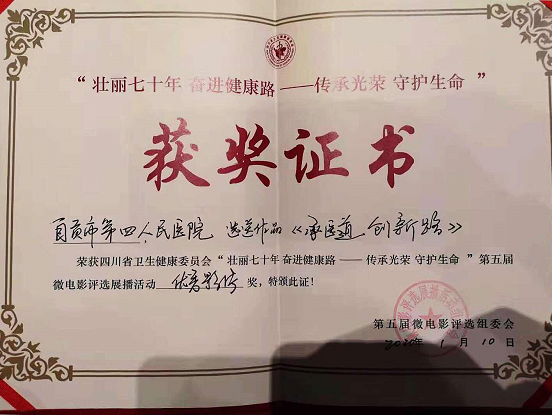 “ 壮丽七十年 奋进健康路 ——传承光荣 守护生命 ”
获奖证书
自贡市第四人民医院 选送作品《承医道 创新路》
荣获四川省卫生健康委员会“ 壮丽七十年 奋进健康路 —— 传承光荣 守护生命 ”第五届
微电影评选展播活动 优秀影片 奖，特颁此证！
第五届微电影评选组委会
2020年 1 月 10 日